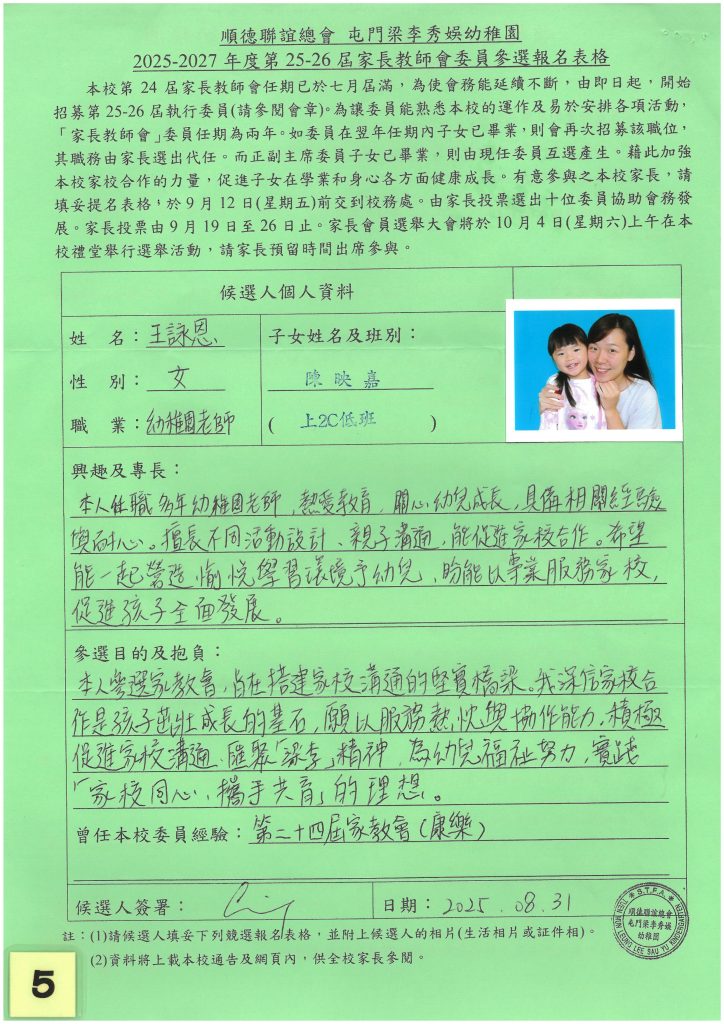 順德聯誼總會 屯門梁李秀娛幼稚園
2025-2027 年度第 25-26 屆家長教師會委員參選報名表格
本校第 24 屆家長教師會任期已於七月屆滿，為使會務能延續不斷，由即日起，開始
招募第 25-26 屆執行委員(請參閱會章)。為讓委員能熟悉本校的運作及易於安排各項活動，
「家長教師會」委員任期為兩年。如委員在翌年任期內子女已畢業，則會再次招募該職位，
其職務由家長選出代任。而正副主席委員子女已畢業，則由現任委員互選產生。藉此加強
本校家校合作的力量，促進子女在學業和身心各方面健康成長。有意參與之本校家長，請
填妥提名表格，於 9 月 12 日(星期五)前交到校務處。由家長投票選出十位委員協助會務發
展。家長投票由 9 月 19 日至 26 日止。家長會員選舉大會將於 10 月 4 日(星期六)上午在本
校禮堂舉行選舉活動，請家長預留時間出席參與。
候選人個人資料
姓 名：王詠恩
子女姓名及班別：
性 別：女
陳映嘉
職 業：幼稚園老師
( 上2C低班 )
興趣及專長：
本人任職多年幼稚園老師，熱愛教育，關心幼兒成長，具備相關經驗
與耐心。擅長不同活動設計、親子溝通，能促進家校合作。希望
能一起營造愉悅學習環境予幼兒，盼能以專業服務家校，
促進孩子全面發展。
參選目的及抱負：
本人參選家教會，旨在搭建家校溝通的堅實橋梁。我深信家校合
作是孩子茁壯成長的基石，願以服務熱忱與協作能力，積極
促進家校溝通、匯聚「梁李」精神，為幼兒福祉努力，實踐
「家校同心、攜手共育」的理想。
曾任本校委員經驗：第二十四屆家教會(康樂)
候選人簽署：
日期：2025.08.31
S.T.F.A.
TUEN MUN LEUNG LEE SAU YU KINDERGARTEN
順德聯誼總會
屯門梁李秀娛
幼稚園
註：(1)請候選人填妥下列競選報名表格，並附上候選人的相片(生活相片或証件相)。
(2)資料將上載本校通告及網頁內，供全校家長參閱。
5